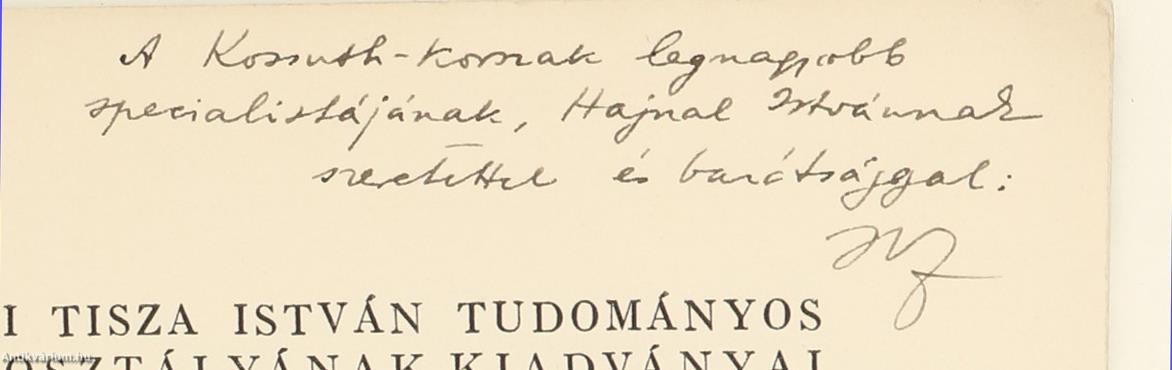 A Kossuth-korszak legnagyobb
specialistájának, Hajnal Istvánnak
szeretettel és barátsággal:
I TISZA ISTVÁN TUDOMÁNYOS
OSZTÁLYÁNAK KIADVÁNYAI
Antikvárium.hu